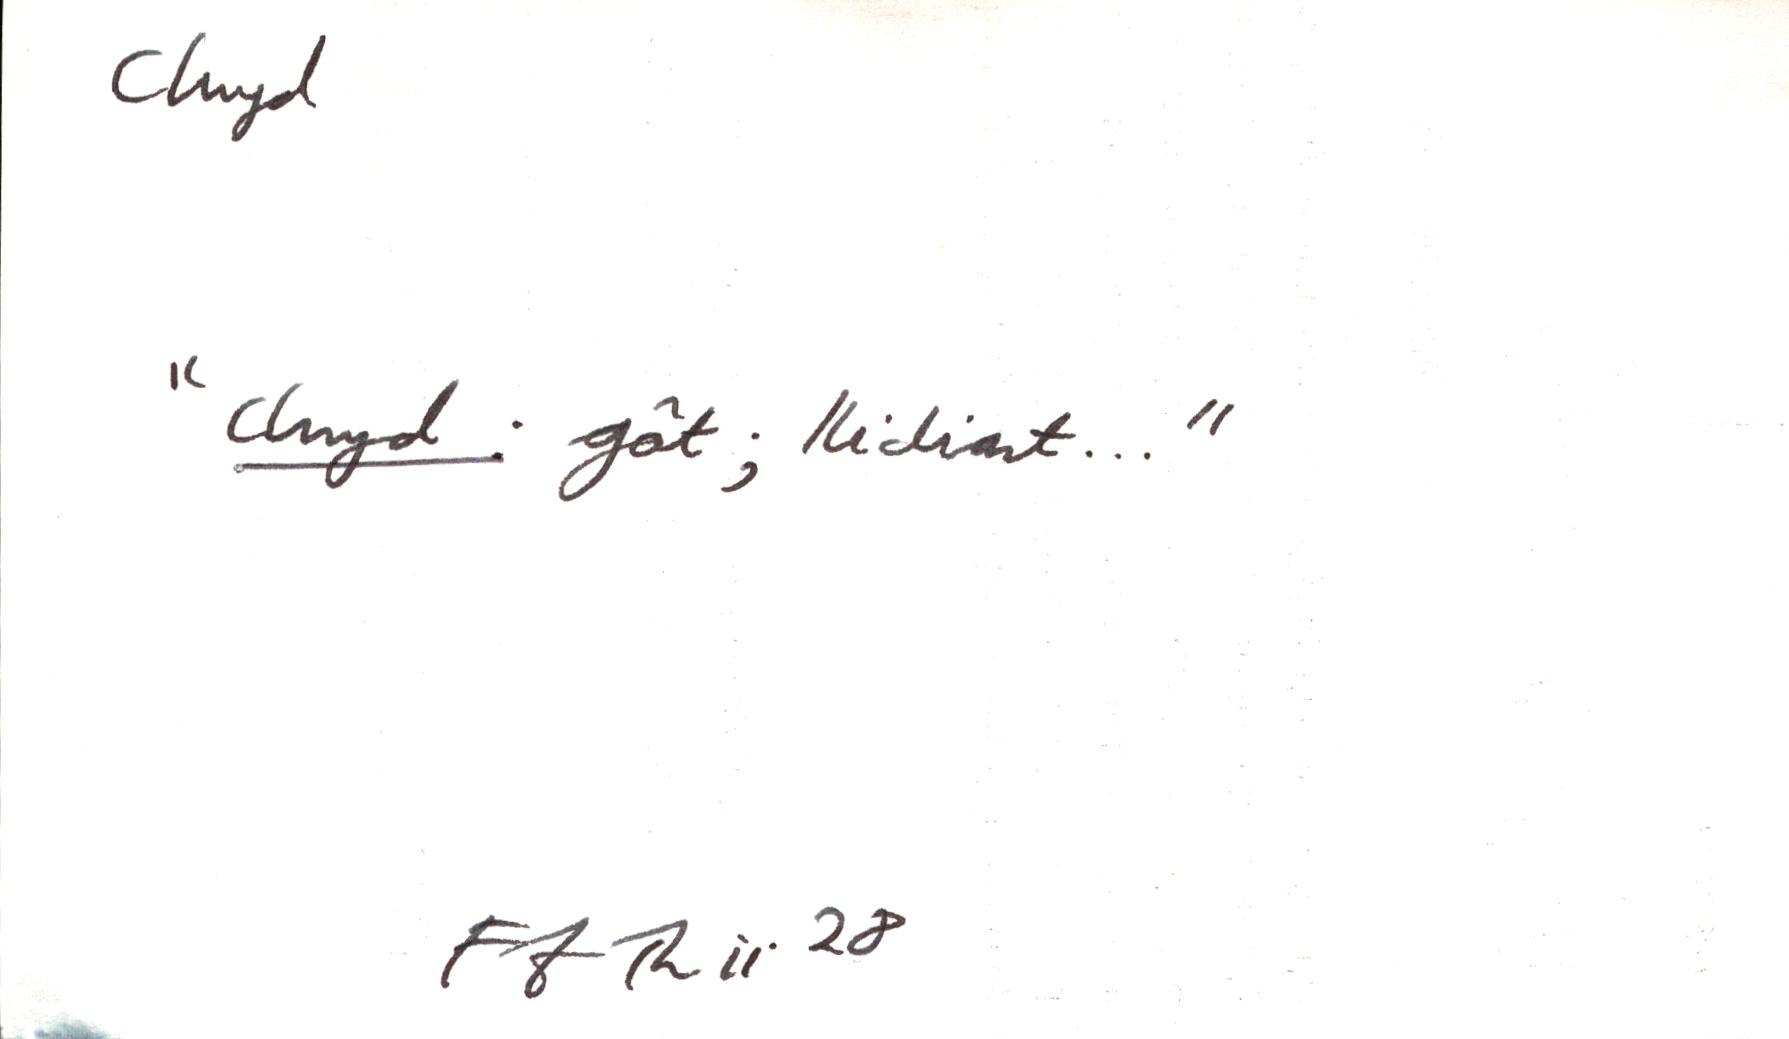 Clwyd
"clwyd: gât; llidiart..."
Ff Th ii 28